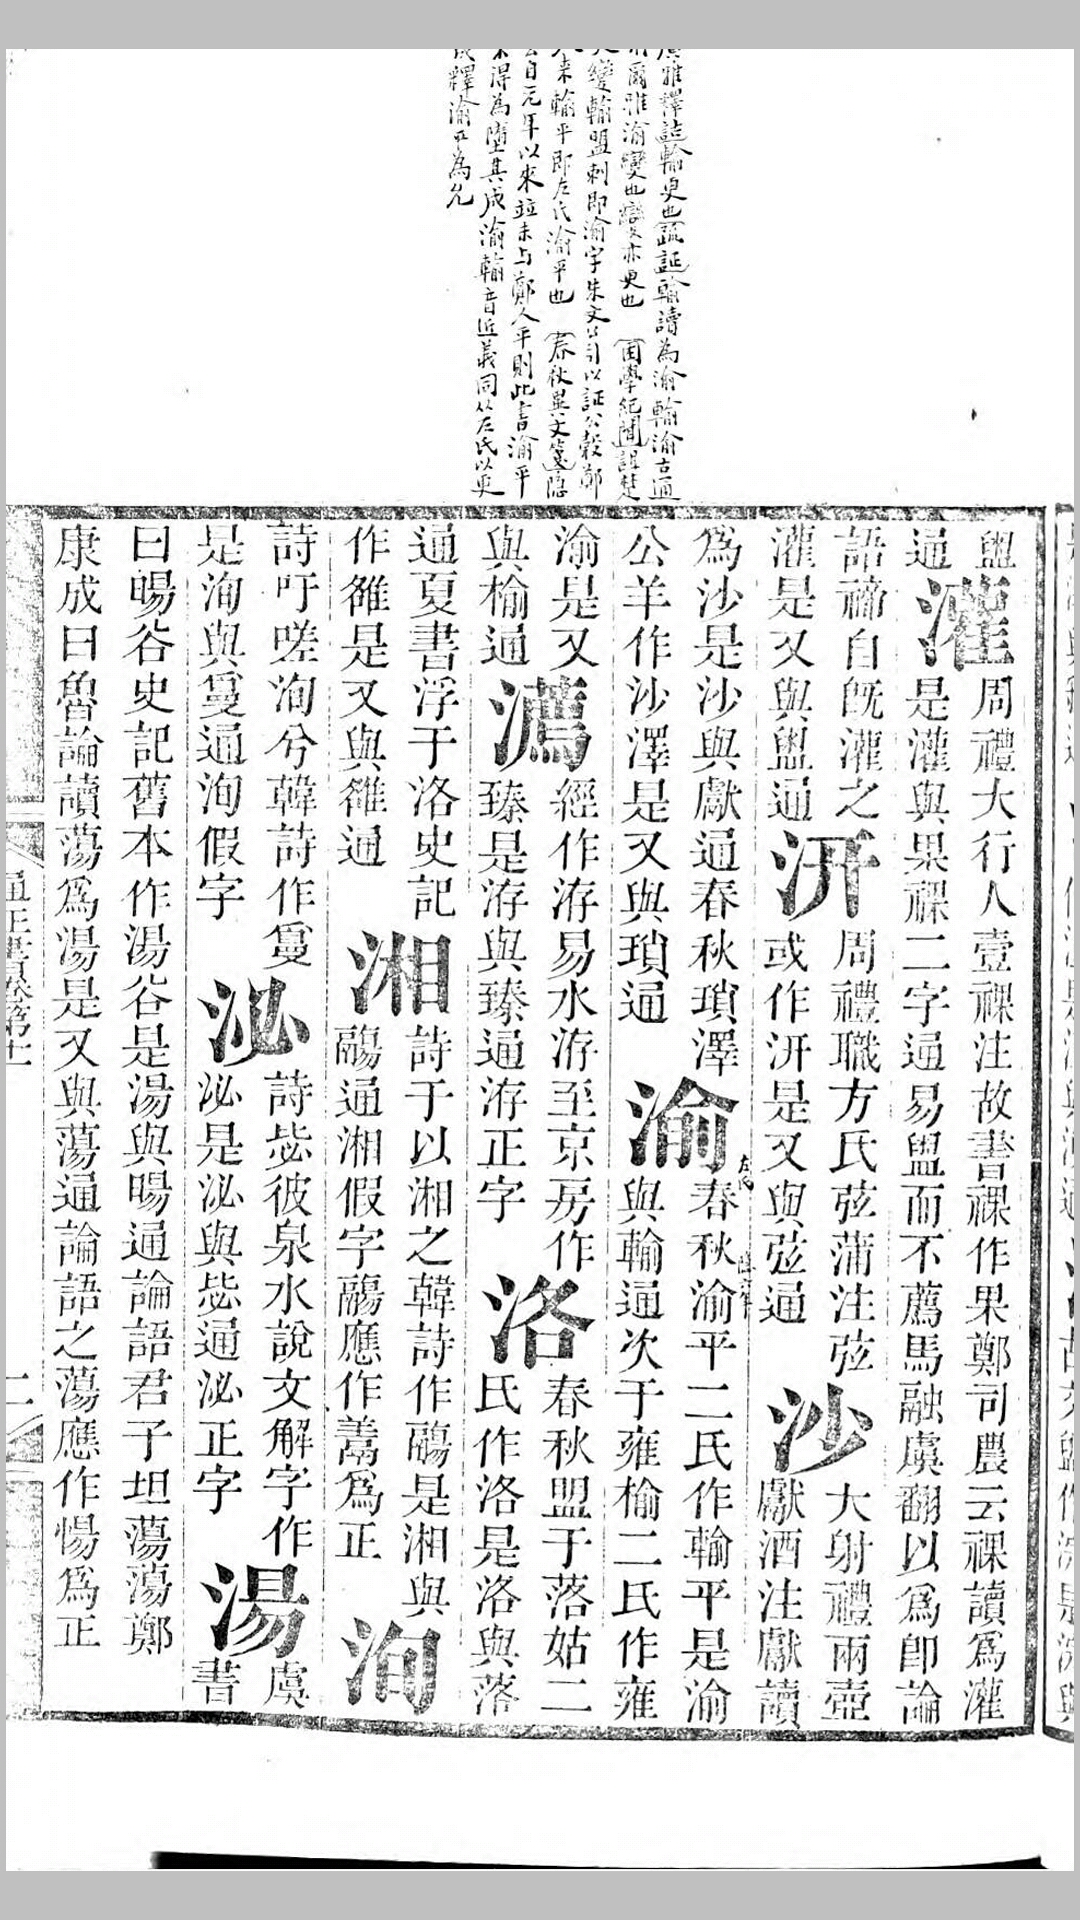 廣雅釋詁輸更也疏証輸讀為渝輸渝古通
爾雅渝變也變亦更也　困學紀聞詛楚
文變輸盟刺即渝字朱文公引以証公穀鄭
人來輸平即左氏渝平也　春秋異文箋隱
公自元年以來竝未与鄭人平則此書渝平
不得為墮其成渝輸音近義同从左氏以更
成釋渝平為允
盥
通灌周禮大行人壹祼注故書祼作果鄭司農云祼讀爲灌
是灌與果祼二字通易盥而不薦馬融虞翻以爲卽論
語禘自旣灌之
灌是又與盥通汧周禮職方氏弦蒲注弦
或作汧是又與弦通沙大射禮兩壺
獻酒注獻讀
爲沙是沙與獻通春秋瑣澤
公羊作沙澤是又與瑣通渝左氏春秋渝平二氏作輸平是渝
與輸通次于雍榆二氏作雍
渝是又
與榆通瀳經作洊易水洊至京房作
臻是洊與臻通洊正字洛春秋盟于落姑二
氏作洛是洛與落
通夏書浮于洛史記
作雒是又與雒通湘詩于以湘之韓詩作鬺是湘與
鬺通湘假字鬺應作鬺爲正洵
詩吁嗟洵兮韓詩作敻
是洵與敻通洵假字泌詩毖彼泉水說文解字作
泌是泌與毖通泌正字湯虞
書
曰暘谷史記舊本作湯谷是湯與暘通論語君子坦蕩蕩鄭
康成曰魯論讀蕩爲湯是又與蕩通論語之蕩應作惕爲正
通正書卷第十
二